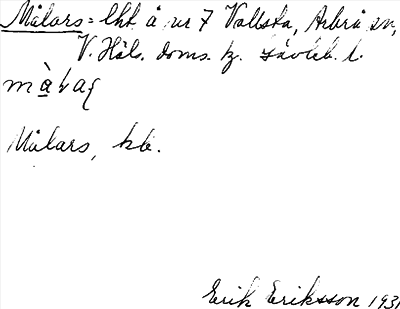 Målars = lht å nr 7 Vallsta, Arbrå sn,
V. Häls. doms. tg. Gävleb. l.
Målars, kb.
Erik Eriksson 1931